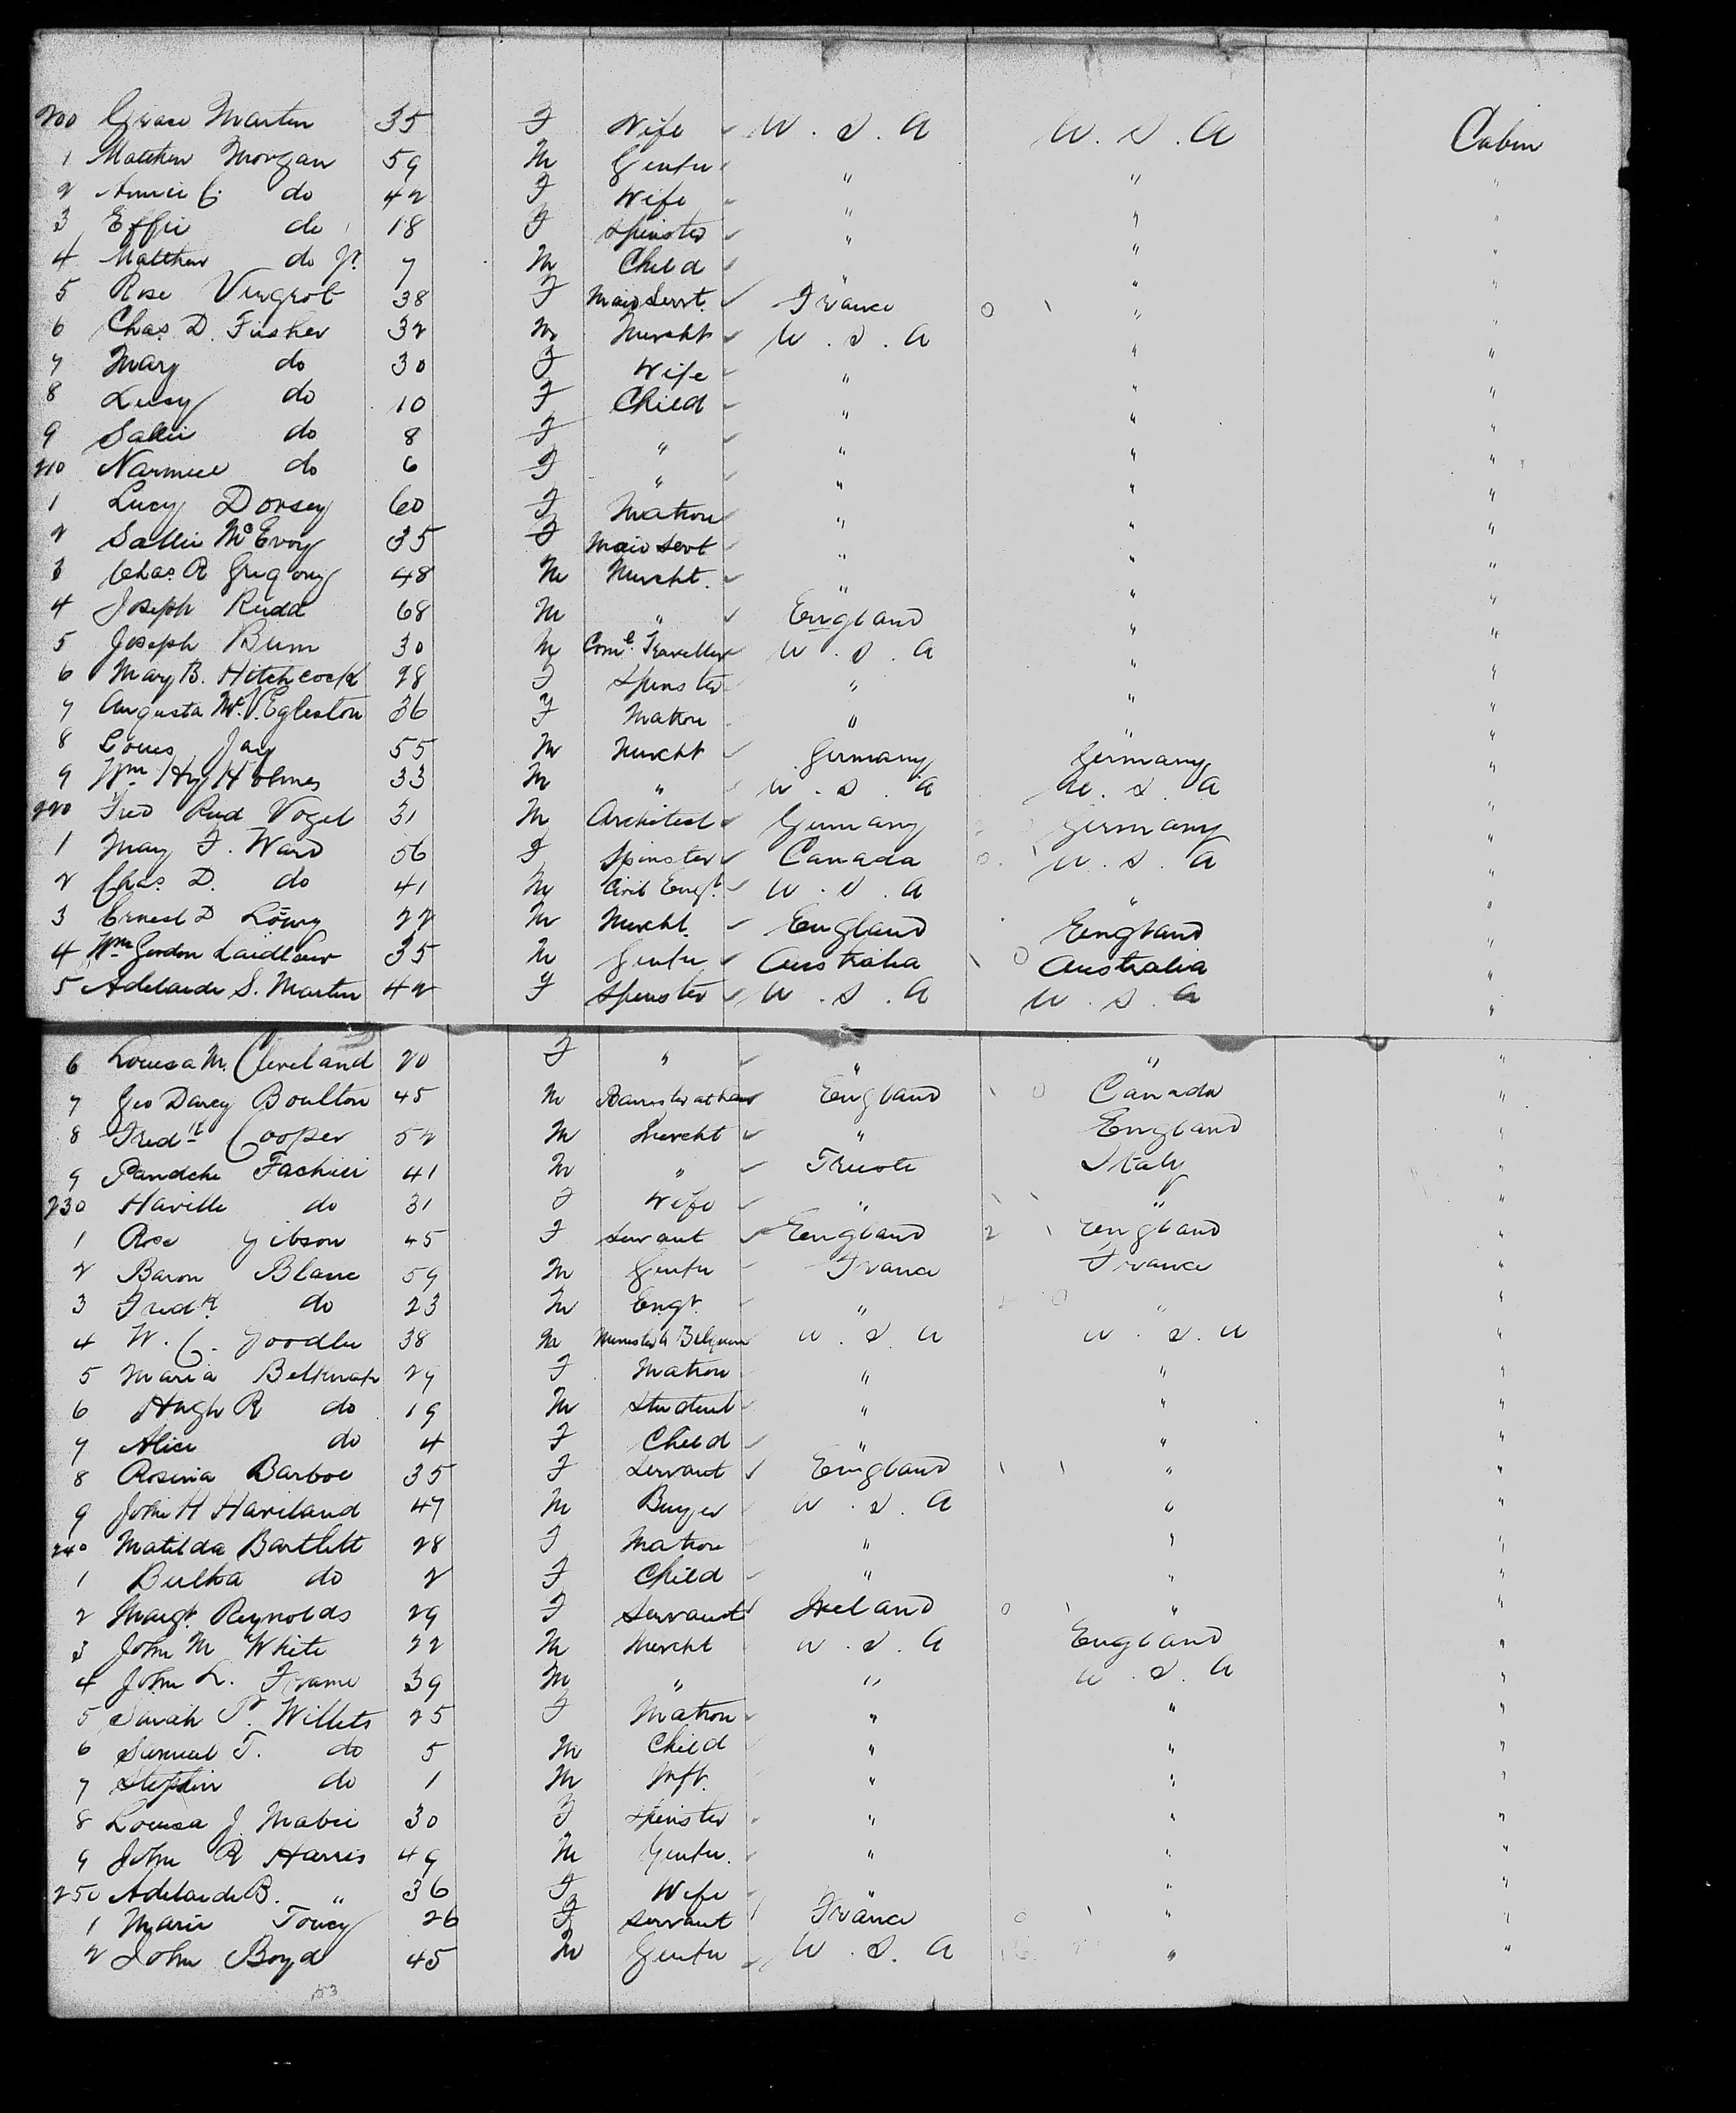 200 Grace Martin 35 F Wife U.S.A U.S.A Cabin
1 Matthew Morgan 59 M Gentn " " "
2 Annie C. do 42 F Wife " " "
3 Effie do 18 F Spinster " " "
4 Matthew do Jr. 7 M Child " " "
5 Rose 38 F Maid Servt. France 0 \ " "
6 Chas. D. Fisher 32 M Mercht U.S.A " "
7 Mary do 30 F Wife " " "
8 Lucy do 10 F Child " " "
9 Sallie do 8 F " " " "
210 do 6 F " " " "
1 Lucy Dorsey 60 F Matron " " "
2 Sallie McEvoy 35 F Maid Servt " " "
3 Chas. R Gregory 48 M Mercht. " " "
4 Joseph Rudd 68 M " England " "
5 Joseph 30 M Coml. Traveller U.S.A " "
6 Mary B. Hitchcock 28 F Spinster " " "
7 Augusta McV. Egleston 36 F Matron " " "
8 Louis Jay 55 M Mercht Germany Germany "
9 Wm Hy Holmes 33 M " U.S.A U.S.A "
220 Fred Rud Vogel 31 M Architect Germany Germany "
1 May F. Ward 56 F Spinster Canada 0 \ U.S.A "
2 Chas. D. do 41 M Civil Engr. U.S.A " "
3 Ernest D Löwy 22 M Mercht. England England "
4 Wm Gordon Laidlaw 35 M Gentn Australia \ 0 Australia "
5 Adelaide S. Martin 42 F Spinster U.S.A U.S.A "
6 Louisa M. Cleveland 20 F " " " "
7 Geo Darcy Boulton 45 M Barrister at Law England \ 0 Canada "
8 Fredk Cooper 52 M Mercht " England "
9 Fachiri 41 M " Trieste Italy "
230 do 31 F Wife " \ \ " "
1 Rose Gibson 45 F Servant England 2 \ England "
2 Baron Blanc 59 M Gentn France France "
3 Fredk. do 23 M Engr. " " "
4 W. C. Goodloe 38 M Minister to Belgium U.S.A U.S.A "
5 Maria Belknap 29 F Matron " " "
6 Hugh R do 19 M Student " " "
7 Alice do 4 F Child " " "
8 Rosina Barboe 35 F Servant England \ \ " "
9 John H Haviland 47 M Buyer U.S.A " "
240 Matilda Bartlett 28 F Matron " " "
1 do 2 F Child " " "
2 Margt. Reynolds 29 F Servant Ireland 0 \ " "
3 John M White 22 M Mercht U.S.A England "
4 John L. Frame 39 M " " U.S.A "
5 Sarah T. Willets 25 F Matron " " "
6 Samuel T. do 5 M Child " " "
7 Stephen do 1 M Inft. " " "
8 Louisa J. Mabie 30 F Spinster " " "
9 John R Harris 49 M Gentn. " " "
250 Adelaide B. " 36 F Wife " " "
1 Marie Toucy 26 F Servant France 0 \ " "
2 John Boyd 45 M Gentn U.S.A " "
53